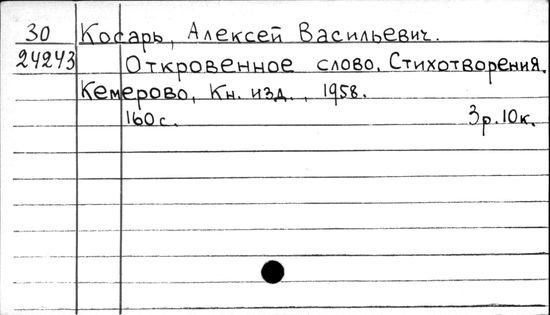 30 Косарь, Алексей Васильевич.
24243 Откровенное слово. Стихотворения.
Кемерово, Кн. изд., 1958.
160с. 3р.10к.